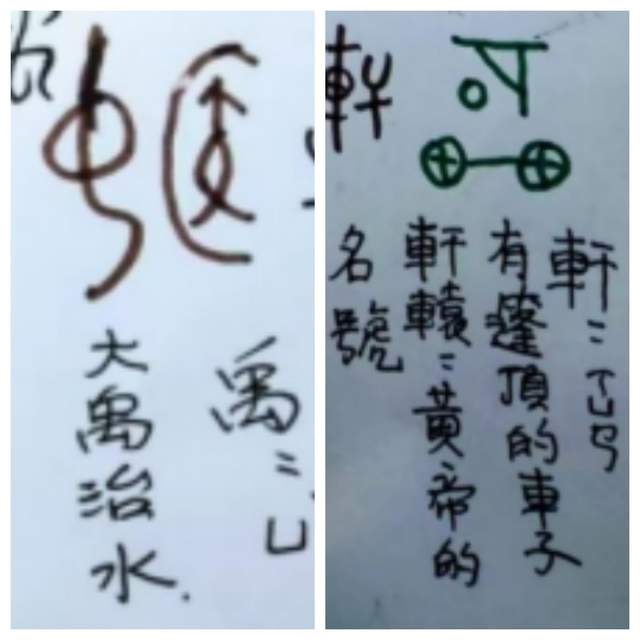 禹：ㄩ
大禹治水.
軒
軒：ㄒㄩㄢ
有蓬頂的車子
軒轅：黃帝的
名號